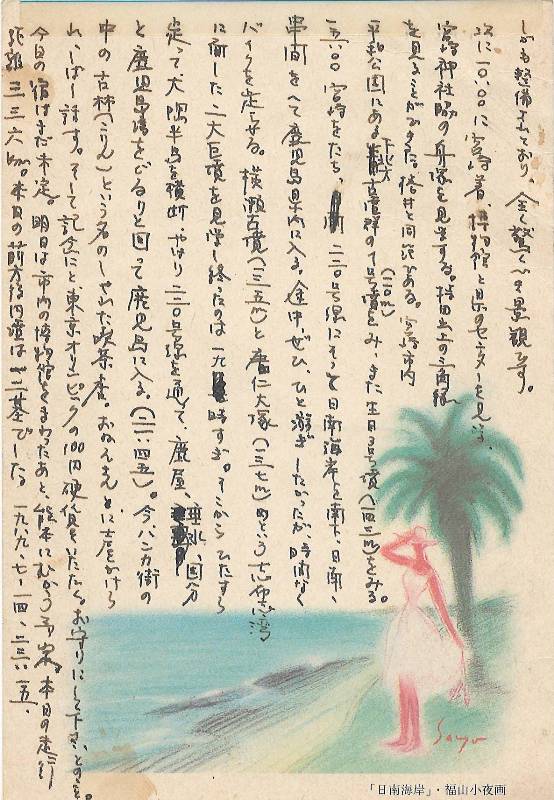 しかも整備されており、全く驚くべき景観です。
次に一〇、〇〇に宮崎着、博物館と県のセンターを見る、
宮崎神社脇の舟塚を見学する。持田出土の三角縁
を見ることができた。椿井と同笵である。宮崎市内
平和公園にある下北方古墳群の1号墳をみ、また生目3号墳(一四三m)をみる。
一五、〇〇宮崎をたち、二二〇号線にそって日南海岸を南下、日南、
串間をへて鹿児島県内に入る。途中ぜひ、ひと游ぎしたかったが、時間なく
バイクを走らせる。横瀬古墳(一三五m)と唐仁大塚(一三七m)という志布志湾
に面した二大巨墳を見学し終ったのは一九時すぎ。そこからひたすら
走って、大隅半島を横断、やはり二二〇号線を通って、鹿屋、垂水、国分
と鹿児島湾をぐるりと回って鹿児島に入る。(二一、四五)。今、バンカ街の
中の古林(こりん)という名のしゃれた喫茶店。おねえさんに声をかけら
れ、しばし話す。そして記念にと東京オリンピックの100円硬貨をいただく。お守りにして下さいとのこと。
今日の宿はまだ未定。明日は市内の博物館をまわったあと、熊本にむかう予定。本日の走行
距離三三六km。本日の前方後円墳は二三基でした 一九八九、七、一四、二三、一五、
Sayo
「日南海岸」・福山小夜画